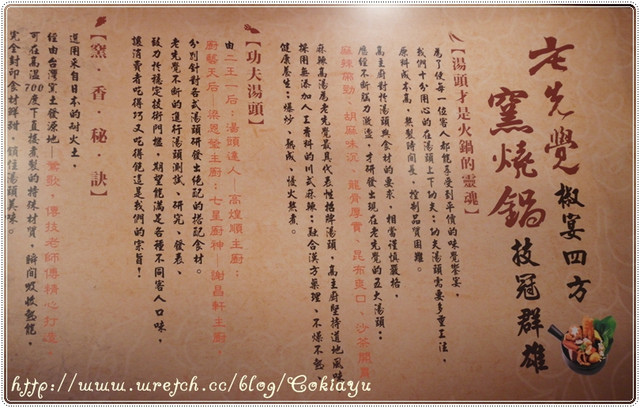 老先覺
窯燒鍋
椒宴四方
技冠群雄
【湯頭才是火鍋的靈魂】
為了使每一位客人都能享受到平價的味覺饗宴，
我們十分用心的在湯頭上下功夫；功夫湯頭需要多重工法，
原料成本高，熬製時間長，控制品質困難。
主廚群對於湯頭與食材的要求，相當謹慎嚴格，
歷經不斷腦力激盪，才研發出現在老先覺的五大湯頭：
麻辣勁、胡麻味沉、龍骨厚實、昆布爽口、沙茶
麻辣高湯為老先覺最具代表性招牌湯頭，高主廚堅持道地風味
採用無添加人工香料的川式麻辣；融合漢方藥理、不燥不
健康養生；爆炒、熟成、慢火熬煮。
【功夫湯頭】
由二王一后：湯頭達人—高煌順主廚；
廚藝天后—梁恩瑩主廚；七星廚神—謝昌軒主廚，
分別針對各式湯頭研發出絕配的搭配食材。
老先覺不斷的進行湯頭測試、研究、發表、
致力於穩定技術門檻，期望能滿足各種不同客人口味，
讓消費者吃得巧又吃得飽這是我們的宗旨！
【窯．香．秘．訣】
選用來自日本的耐火土，
經由台灣窯土發源地—鶯歌，傳技老師傅精心打造，
可在高溫700度下直接煮製的特殊材質，瞬間吸收熱能，
完全封印食材鮮甜，鎖住湯頭美味。
http://www.wretch.cc/blog/Cokiayu